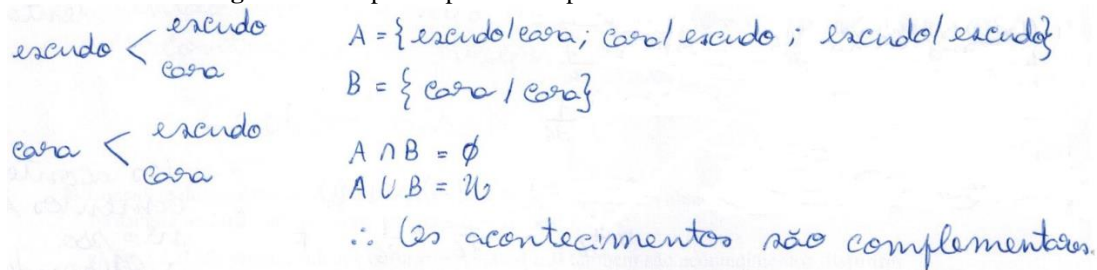 escudo < escudo
cara
cara < escudo
cara
A = {escudo/cara; cara/escudo; escudo/escudo}
B = {cara/cara}
A ∩ B = ∅
A ∪ B = U
∴ Os acontecimentos são complementares.